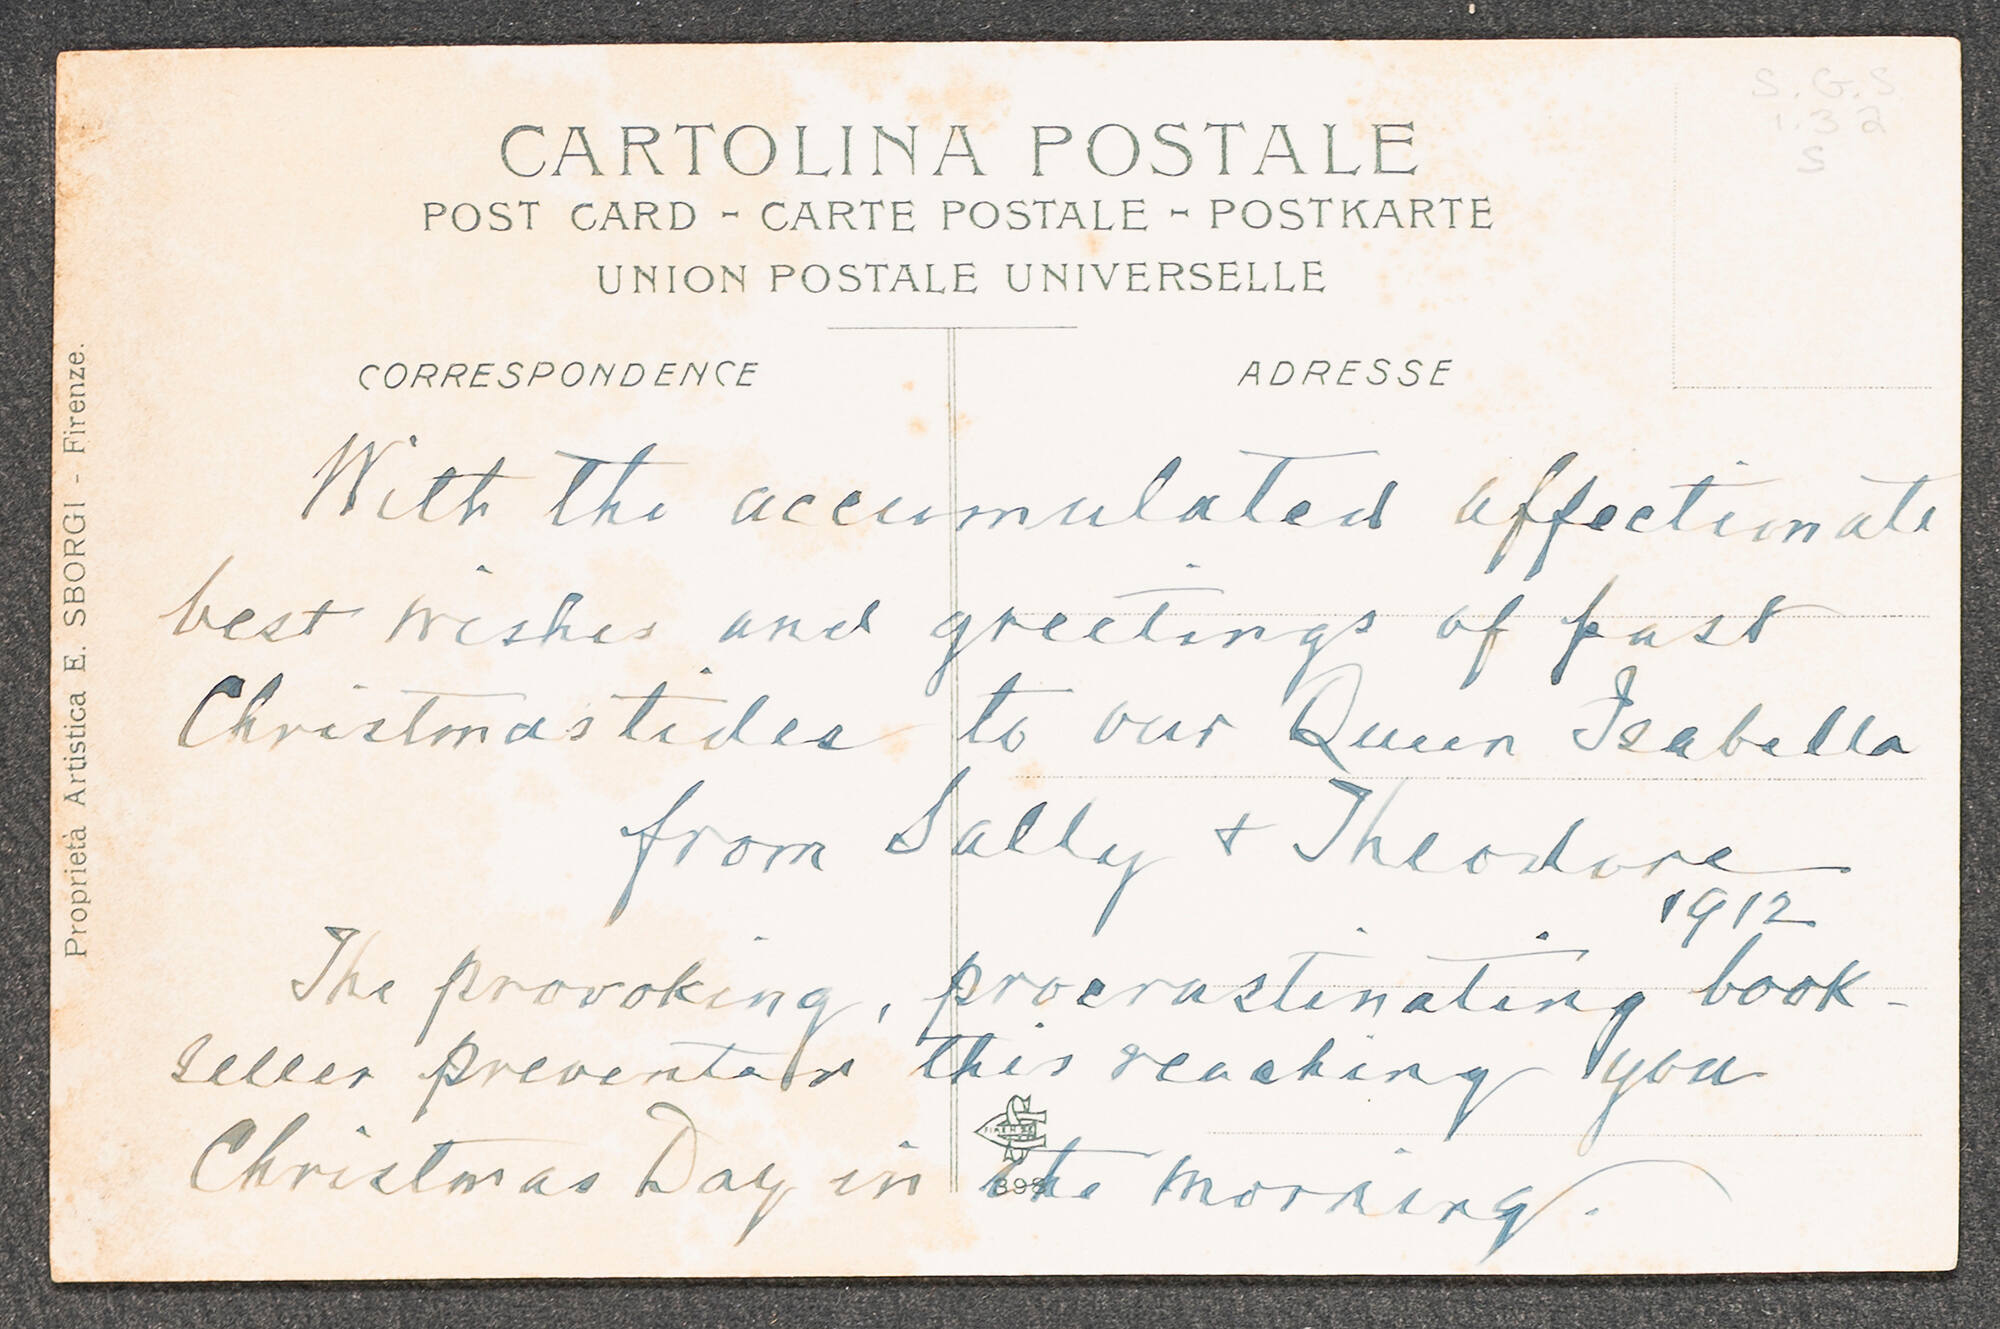 S.G.S
1.3 2
S
CARTOLINA POSTALE
POST CARD - CARTE POSTALE - POSTKARTE
UNION POSTALE UNIVERSELLE
CORRESPONDENCE
ADRESSE
Proprietà Artistica E. SBORGI - Firenze.
With the accumulated affectionate
best wishes and greetings of past
Christmastides to our Queen Isabella
from Sally + Theodore
1912
The provoking, procrastinating book-
seller prevents this reaching you
Christmas Day in the morning.
FIRENZE